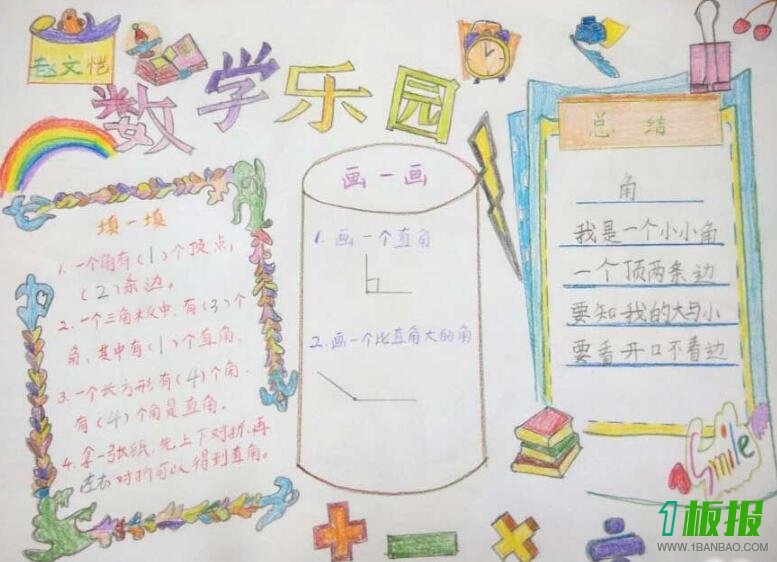 赵文恺
数学乐园
填一填
1.一个角有(1)个顶点,
(2)条边。
2.一个三角板中,有(3)个
角、其中有(1)个直角.
3.一个长方形有(4)个角.
有(4)个角是直角。
4.拿一张纸,先上下对折,再
左右对折可以得到直角。
画一画
1.画一个直角
2.画一个比直角大的角
总结
角
我是一个小小角
一个顶两条边
要知我的大与小
要看开口不看边
Smile
1板报
WWW.1BANBAO.COM